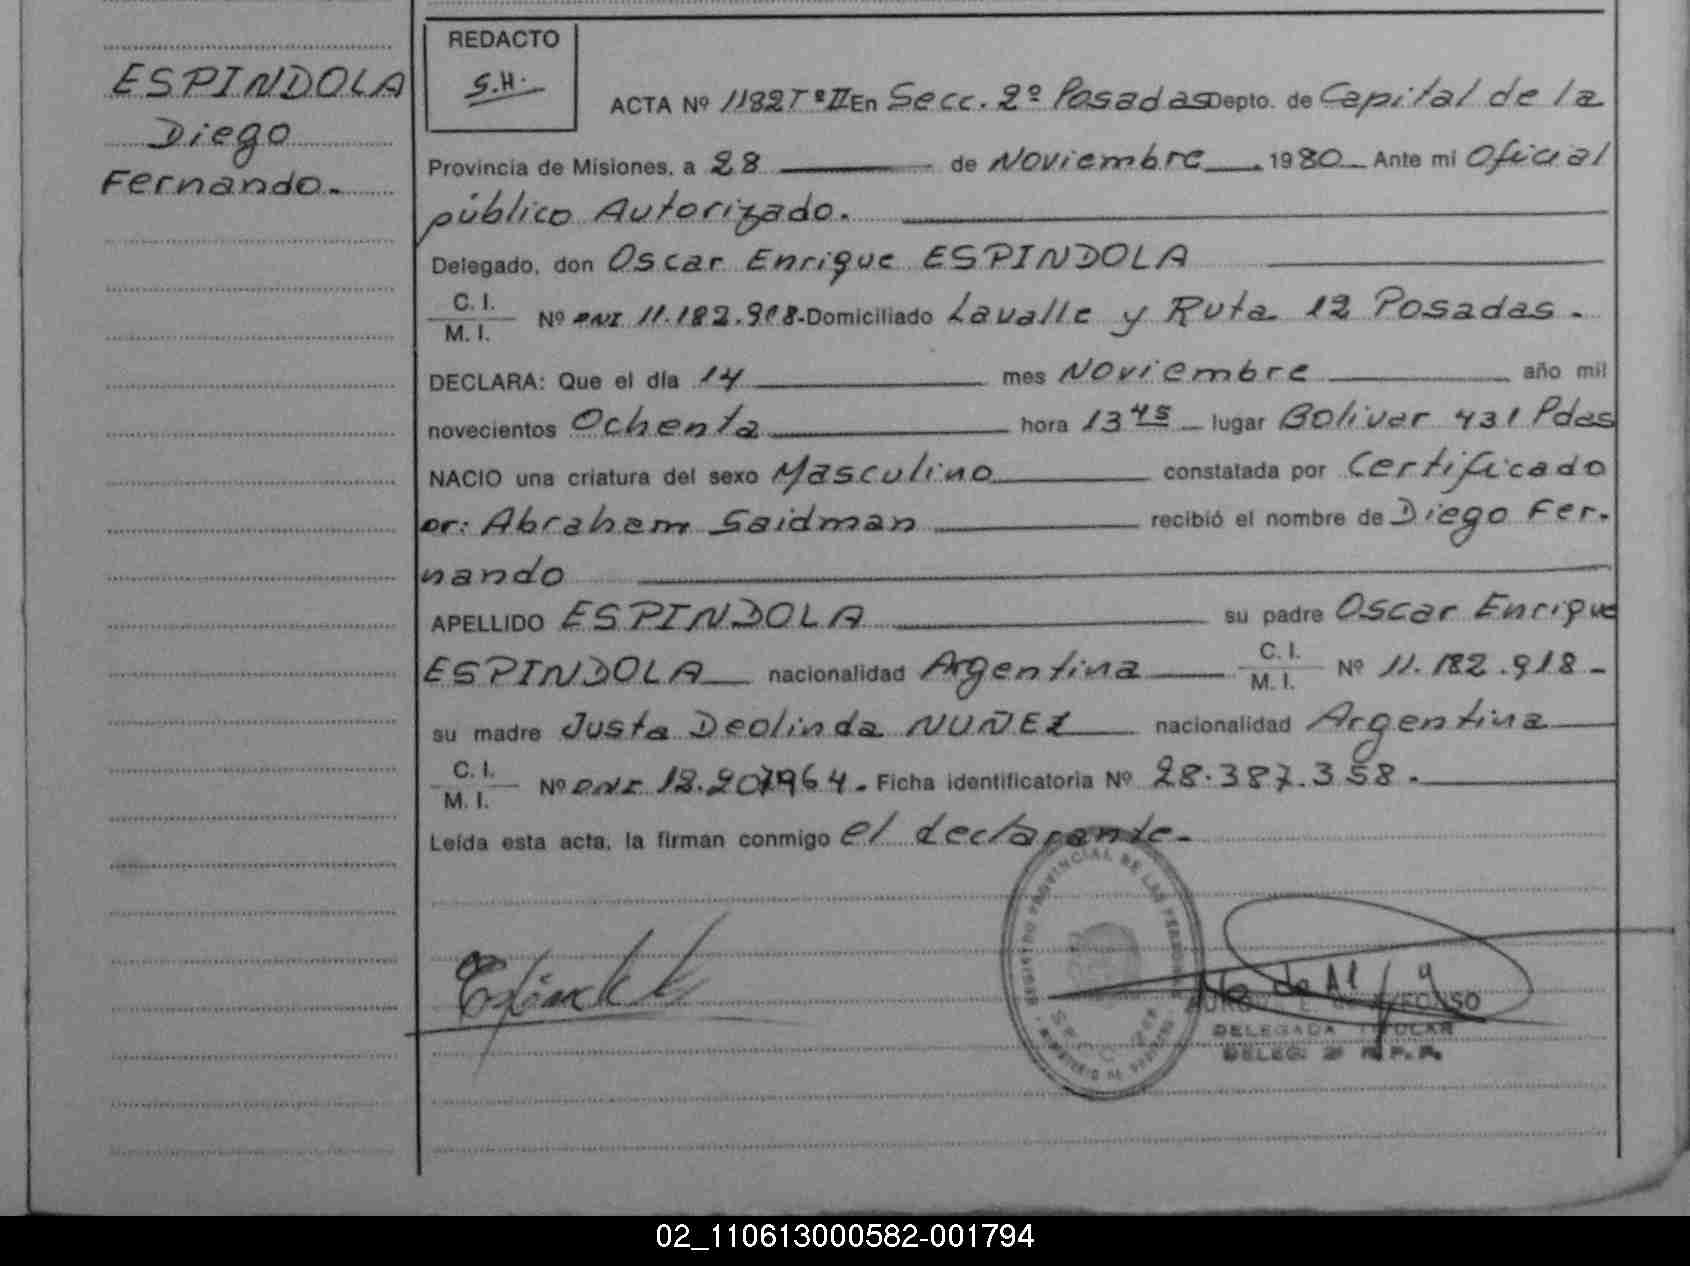 ESPINDOLA
Diego
Fernando.
REDACTO
S.H.
ACTA Nº 1182 Tº II En Secc. 2º Posadas Depto. de Capital de la
Provincia de Misiones, a 28 de Noviembre 1980 Ante mi Oficial
público Autorizado.
Delegado, don Oscar Enrique ESPINDOLA
C. I.
M. I. Nº DNI 11.182.918.- Domiciliado Lavalle y Ruta 12 Posadas.
DECLARA: Que el día 14 mes Noviembre año mil
novecientos Ochenta hora 13 45 lugar Bolivar 431 Pdas
NACIO una criatura del sexo Masculino constatada por Certificado
Dr: Abraham Saidman recibió el nombre de Diego Fer-
nando
APELLIDO ESPINDOLA su padre Oscar Enrique
ESPINDOLA nacionalidad Argentina C. I.
M. I. Nº 11.182.918-
su madre Justa Deolinda NUÑEZ nacionalidad Argentina
C. I.
M. I. Nº DNI Ficha identificatoria Nº 28.387.358.
Leída esta acta, la firman conmigo el declarante.-
REGISTRO PROVINCIAL DE LAS PERSONAS
DELEGADA TITULAR
DELEG. 2ª R.P.P.
02_110613000582-001794